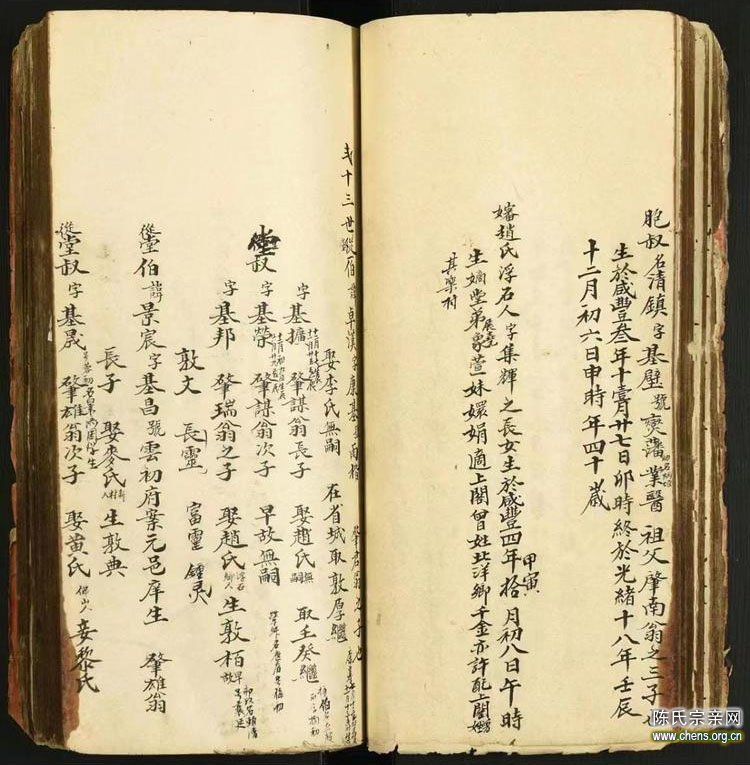 胞叔名清鎮字基壁號奭藩業醫 祖父肇南翁之三子
生於咸豐叁年十壹月廿七日卯時終於光緒十八年壬辰
十二月初六日申時年四十歲
嬸趙氏浮石人字集輝之長女生於咸豐四年甲寅拾月初八日午時
生嫡堂弟象萱妹嬛娟適上閣曾姓北洋鄉千金亦許配上閣
其樂村
弍十三世從伯諱卓漢字康基
娶李氏無嗣 在省城取敦厚繼
字基擴 肇謀翁長子 娶趙氏無嗣 取壬癸繼
堂叔字基榮 肇謀翁次子 早故無嗣
字基邦 肇瑞翁之子 娶趙氏浮石 生敦栢
敦文 長靈 富靈 鍾灵
從堂伯諱景宸字基昌號雲初府案元邑庠生 肇雄翁
長子 娶麥氏 生敦典
從堂叔字基晟 肇雄翁次子 娶黃氏佛山人 妾黎氏
陈氏宗亲网
www.chens.org.cn